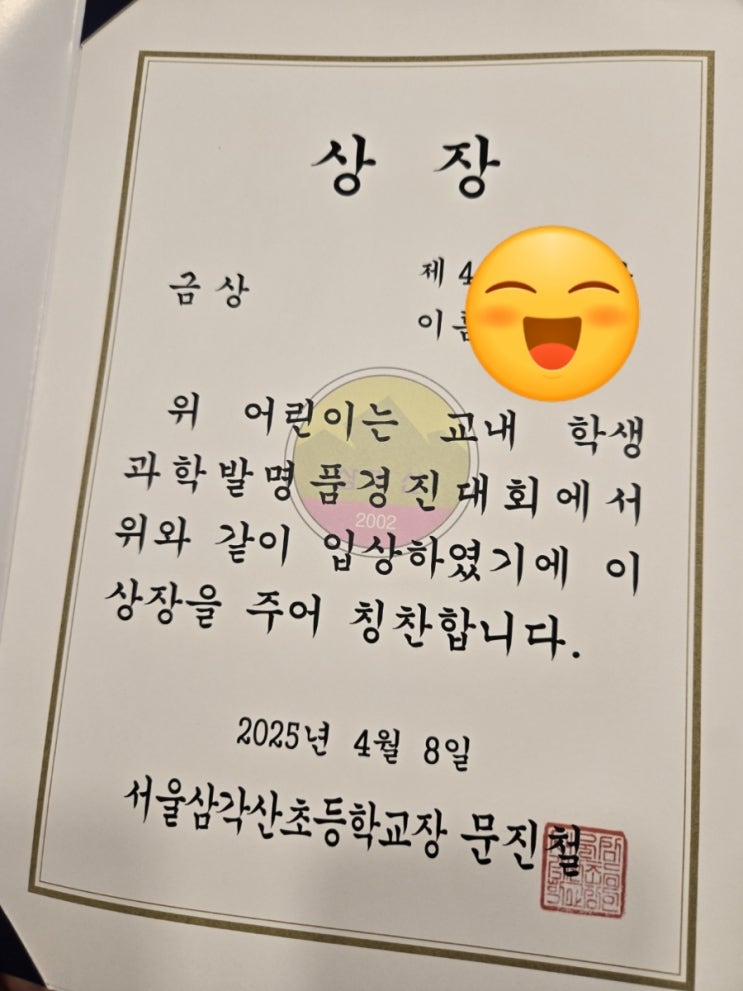 상 장
금상
제 4
이름
위 어린이는 교내 학생
과학발명품경진대회에서
위와 같이 입상하였기에 이
상장을 주어 칭찬합니다.
2002
2025년 4월 8일
서울삼각산초등학교장 문진철